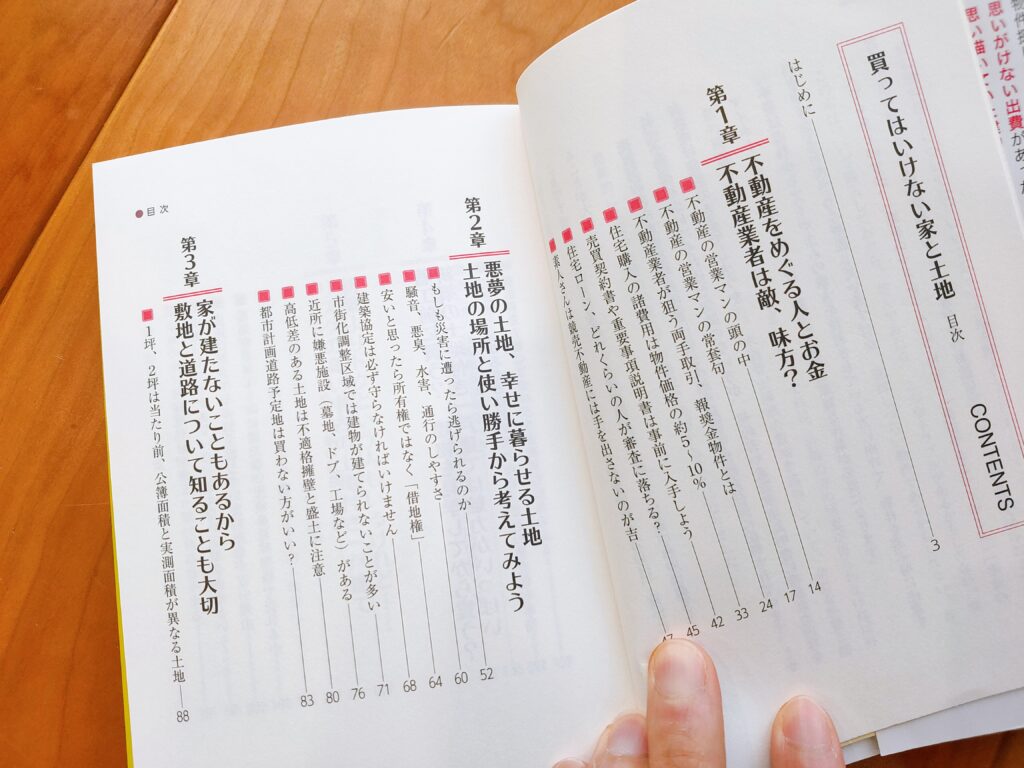 思いがけない出費があ
買ってはいけない家と土地 目次
CONTENTS
はじめに 3
第1章
不動産をめぐる人とお金
不動産業者は敵、味方?
不動産の営業マンの頭の中 14
不動産の営業マンの常套句 17
不動産業者が狙う両手取引、報奨金物件とは 24
住宅購入の諸費用は物件価格の約5〜10% 33
売買契約書や重要事項説明書は事前に入手しよう 42
住宅ローン、どれくらいの人が審査に落ちる? 45
素人さんは競売不動産には手を出さないのが吉 47
第2章
悪夢の土地、幸せに暮らせる土地
土地の場所と使い勝手から考えてみよう
もしも災害に遭ったら逃げられるのか 52
騒音、悪臭、水害、通行のしやすさ 60
安いと思ったら所有権ではなく「借地権」 64
建築協定は必ず守らなければいけません 68
市街化調整区域では建物が建てられないことが多い 71
近所に嫌悪施設(墓地、ドブ、工場など)がある 76
高低差のある土地は不適格擁壁と盛土に注意 80
都市計画道路予定地は買わない方がいい? 83
第3章
家が建たないこともあるから
敷地と道路について知ることも大切
1坪、2坪は当たり前、公簿面積と実測面積が異なる土地 88
●目次